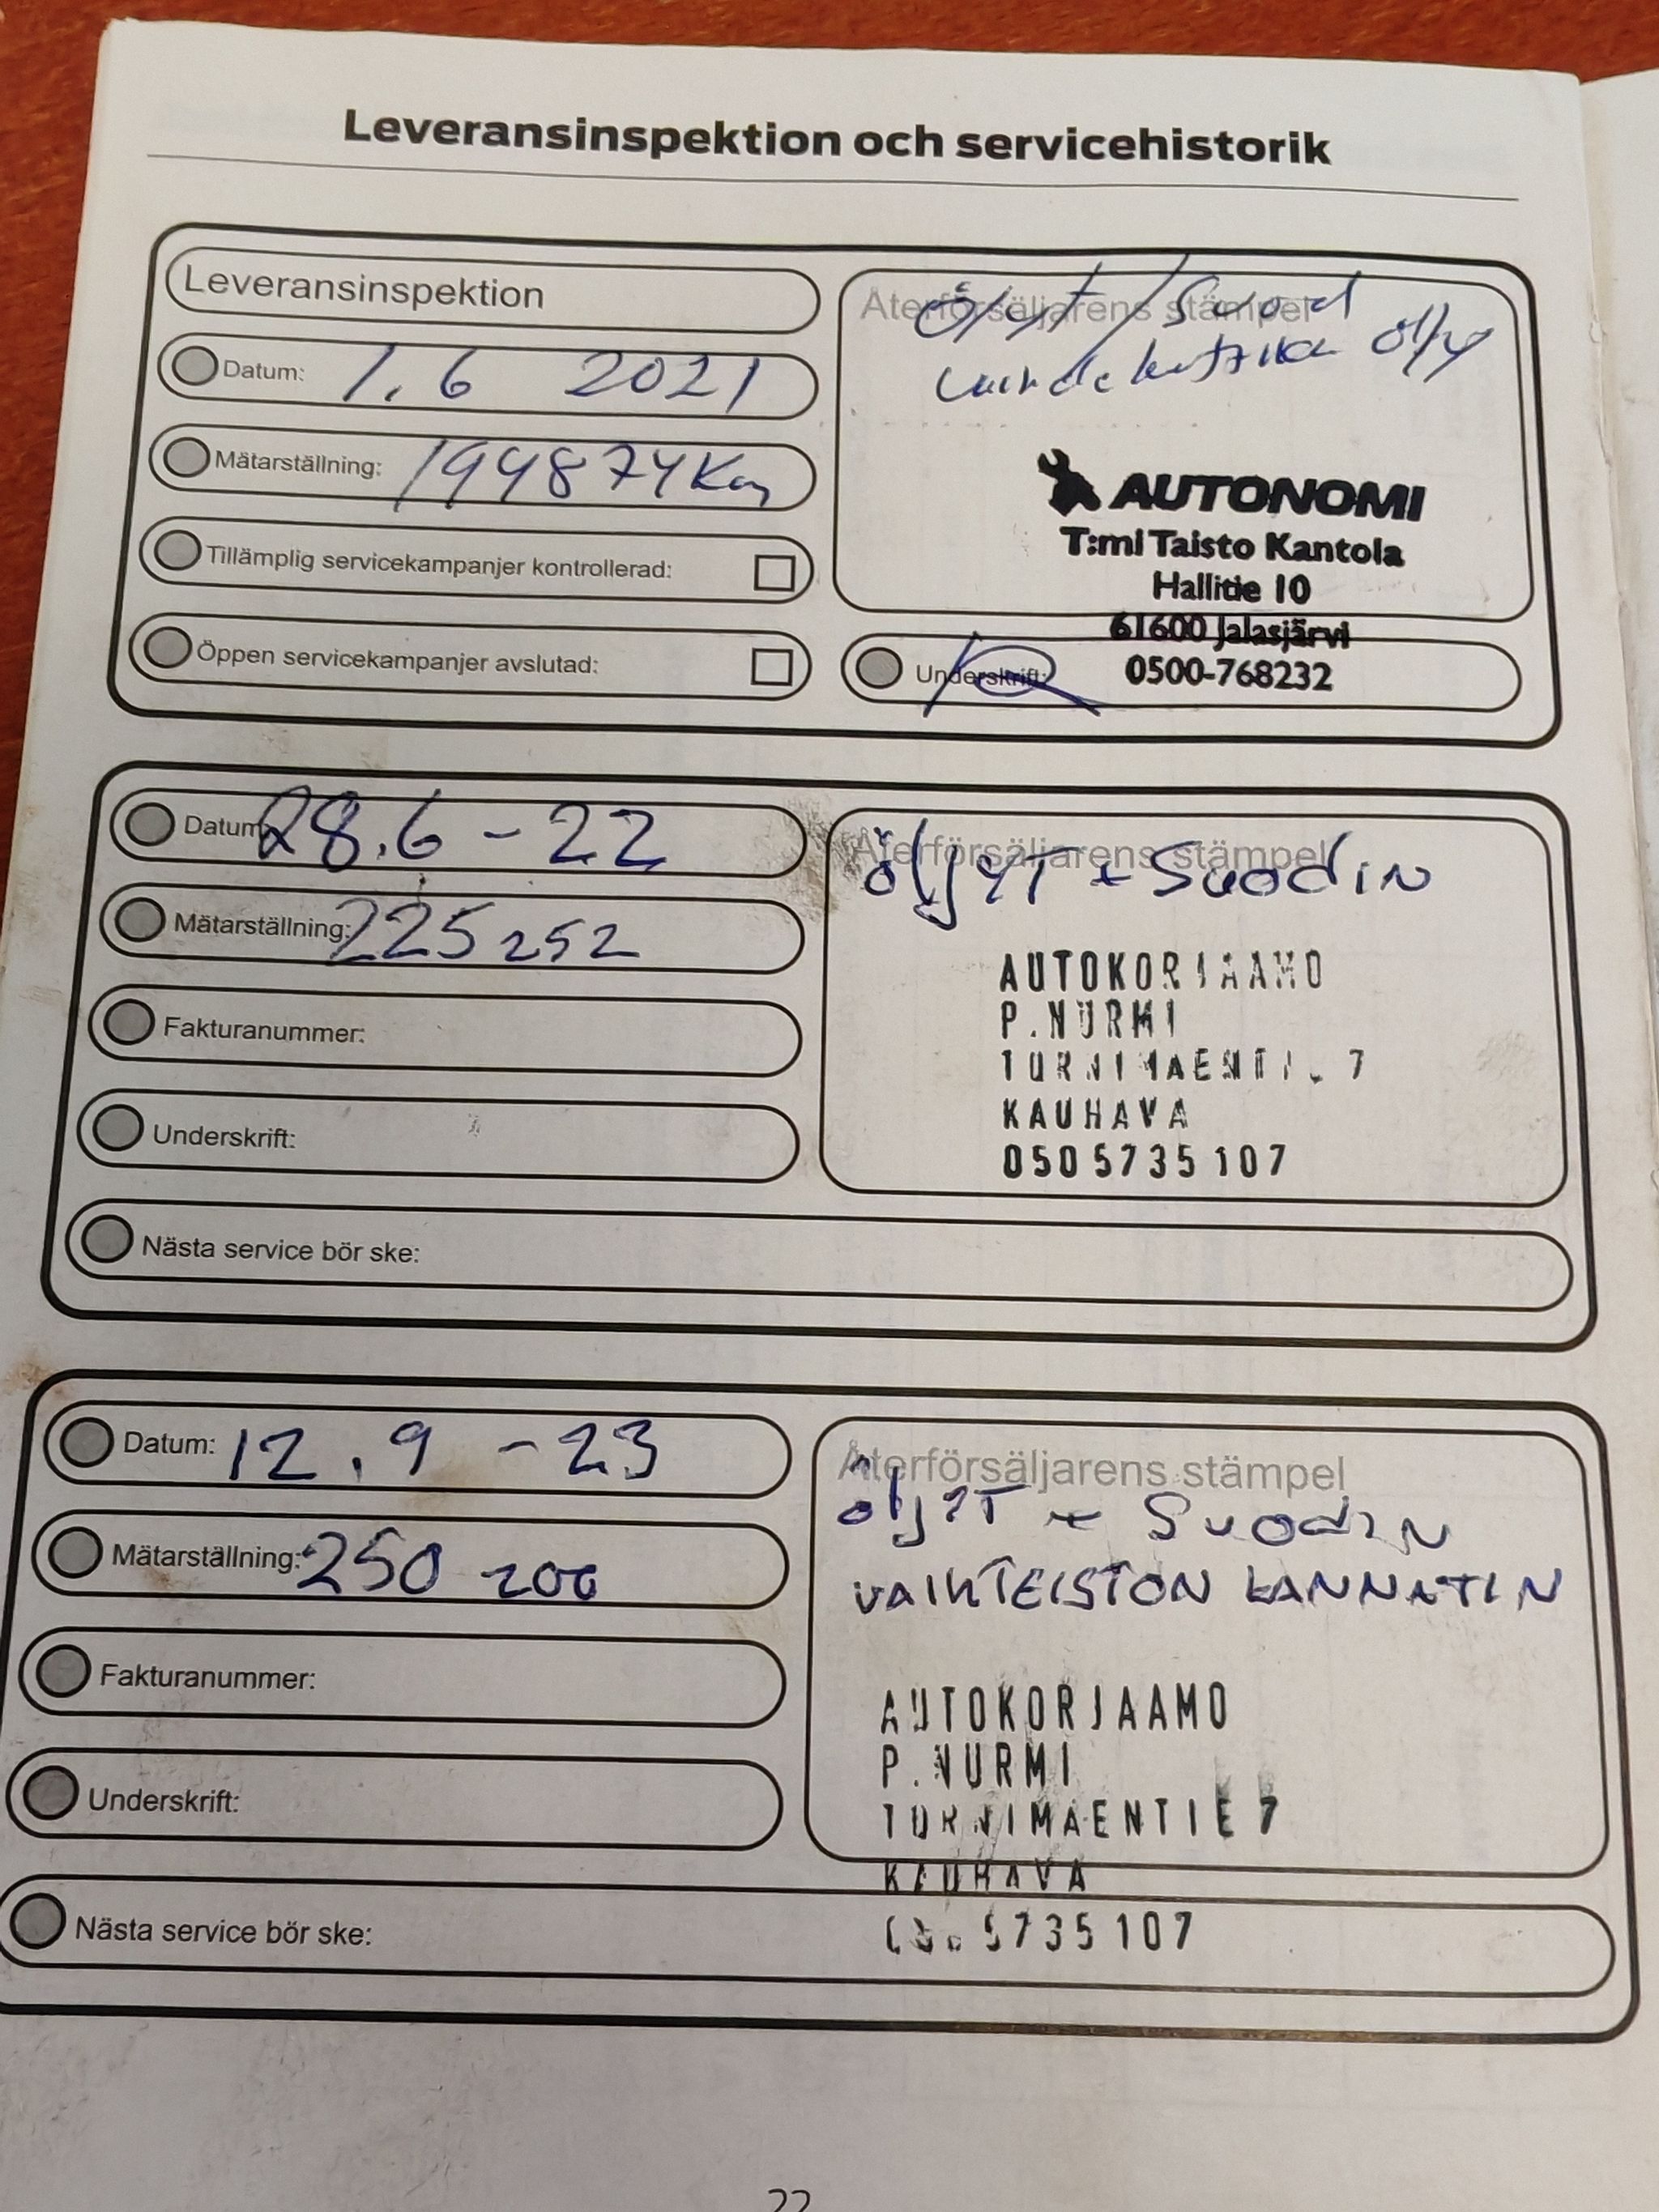 Leveransinspektion och servicehistorik
Leveransinspektion
Datum: 1.6 2021
Mätarställning: 199874 Km
Tillämplig servicekampanjer kontrollerad:
Öppen servicekampanjer avslutad:
Återförsäljarens stämpel
Öljyt / Suod
öljy
AUTONOMI
T:mi Taisto Kantola
Hallitie 10
61600 Jalasjärvi
0500-768232
Underskrift:
Datum: 28.6 - 22
Mätarställning: 225 252
Fakturanummer:
Underskrift:
Nästa service bör ske:
Återförsäljarens stämpel
öljyT + Suodin
AUTOKORJAAMO
P.NURMI
TORNIMAENTIE 7
KAUHAVA
050 5735 107
Datum: 12.9 - 23
Mätarställning: 250 200
Fakturanummer:
Underskrift:
Nästa service bör ske:
Återförsäljarens stämpel
öljyT + Suodin
VAIHTEISTON KANNATIN
AUTOKORJAAMO
P.NURMI
TORNIMAENTIE 7
KAUHAVA
5735 107
22